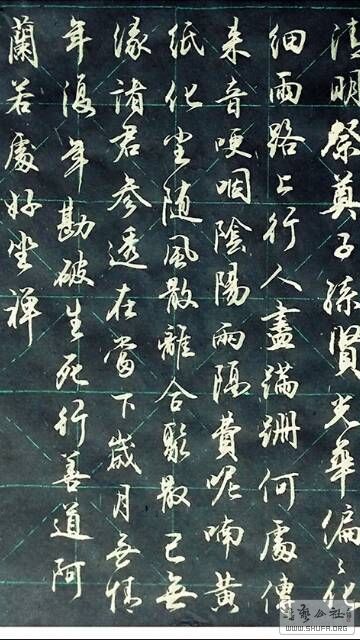 清明祭奠子孫賢光華偏〻化
細雨路上行人盡蹣跚何處傳
來音哽咽陰陽兩隔費呢喃黃
紙化尘随風散離合聚散已無
緣諸君參透在當下歲月無情
年復年勘破生死行善道阿
蘭若處好坐禅
公社
WWW.SHUFA.ORG